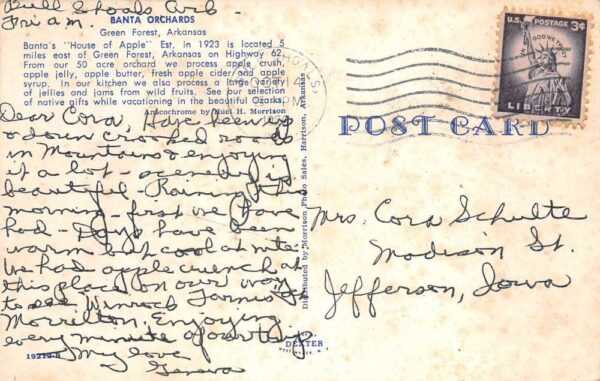 Bull Shoals Ark
Fri a.m.
BANTA ORCHARDS
Green Forest, Arkansas
Banta's "House of Apple" Est. in 1923 is located 5
miles east of Green Forest, Arkansas on Highway 62.
From our 50 acre orchard we process apple crush,
apple jelly, apple butter, fresh apple cider and apple
syrup. In our kitchen we also process a large variety
of jellies and jams from wild fruits. See our selection
of native gifts while vacationing in the beautiful Ozarks.
Anscochrome by Huel H. Morrison
Dear Cora, Have been up
& down crooked roads
in Mountains & enjoying
it a lot - scenery is
beautiful - Raining this
morning - first we have
had - Days have been
warm but cool at nite.
We had apple crunch at
this place on our way
to see Winrock Farms at
Morrilton. Enjoying
every minute of our trip
My love
Geneva
19222-B
Distributed by Morrison Photo Sales, Harrison, Arkansas
DEXTER
U.S. POSTAGE 3¢
IN GOD WE TRUST
LIBERTY
POST CARD
Mrs. Cora Schulte
Madison St.
Jefferson, Iowa